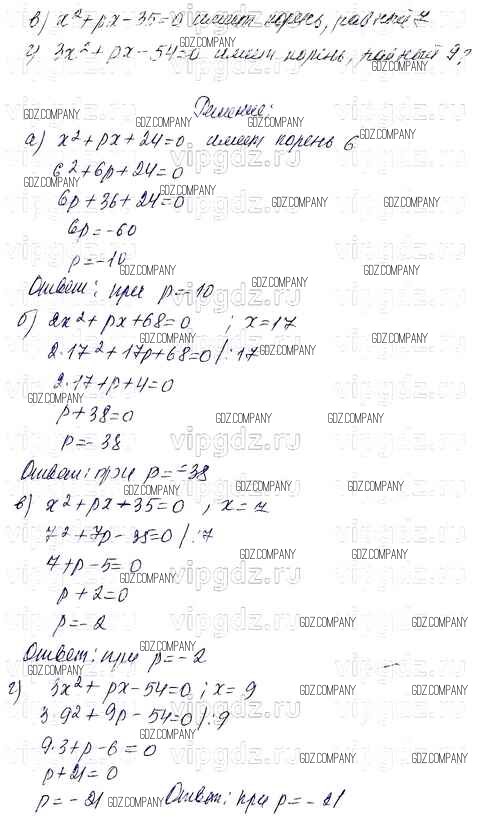 в) x² + px - 35 = 0 имеет корень, равный 7
г) 3x² + px - 54 = 0 имеет корень, равный 9?
Решение:
а) x² + px + 24 = 0 имеет корень 6
6² + 6p + 24 = 0
6p + 36 + 24 = 0
6p = -60
p = -10
Ответ: при p = -10
б) 2x² + px + 68 = 0 ; x = 17
2·17² + 17p + 68 = 0 /:17
2·17 + p + 4 = 0
p + 38 = 0
p = - 38
Ответ: при p = -38
в) x² + px + 35 = 0 , x = 7
7² + 7p - 35 = 0 /:7
7 + p - 5 = 0
p + 2 = 0
p = - 2
Ответ: при p = - 2
г) 3x² + px - 54 = 0 ; x = 9
3·9² + 9p - 54 = 0 /:9
9·3 + p - 6 = 0
p + 21 = 0
p = - 21 Ответ: при p = - 21